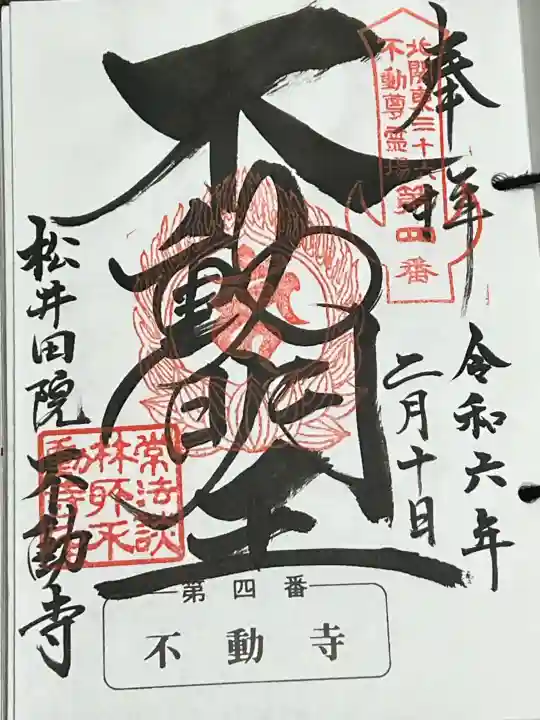 奉拝
北関東三十六
不動尊霊場第四番
令和六年
二月十日
不動明王
松井田院 不動寺
常法談
林所不
動寺
第四番
不動寺